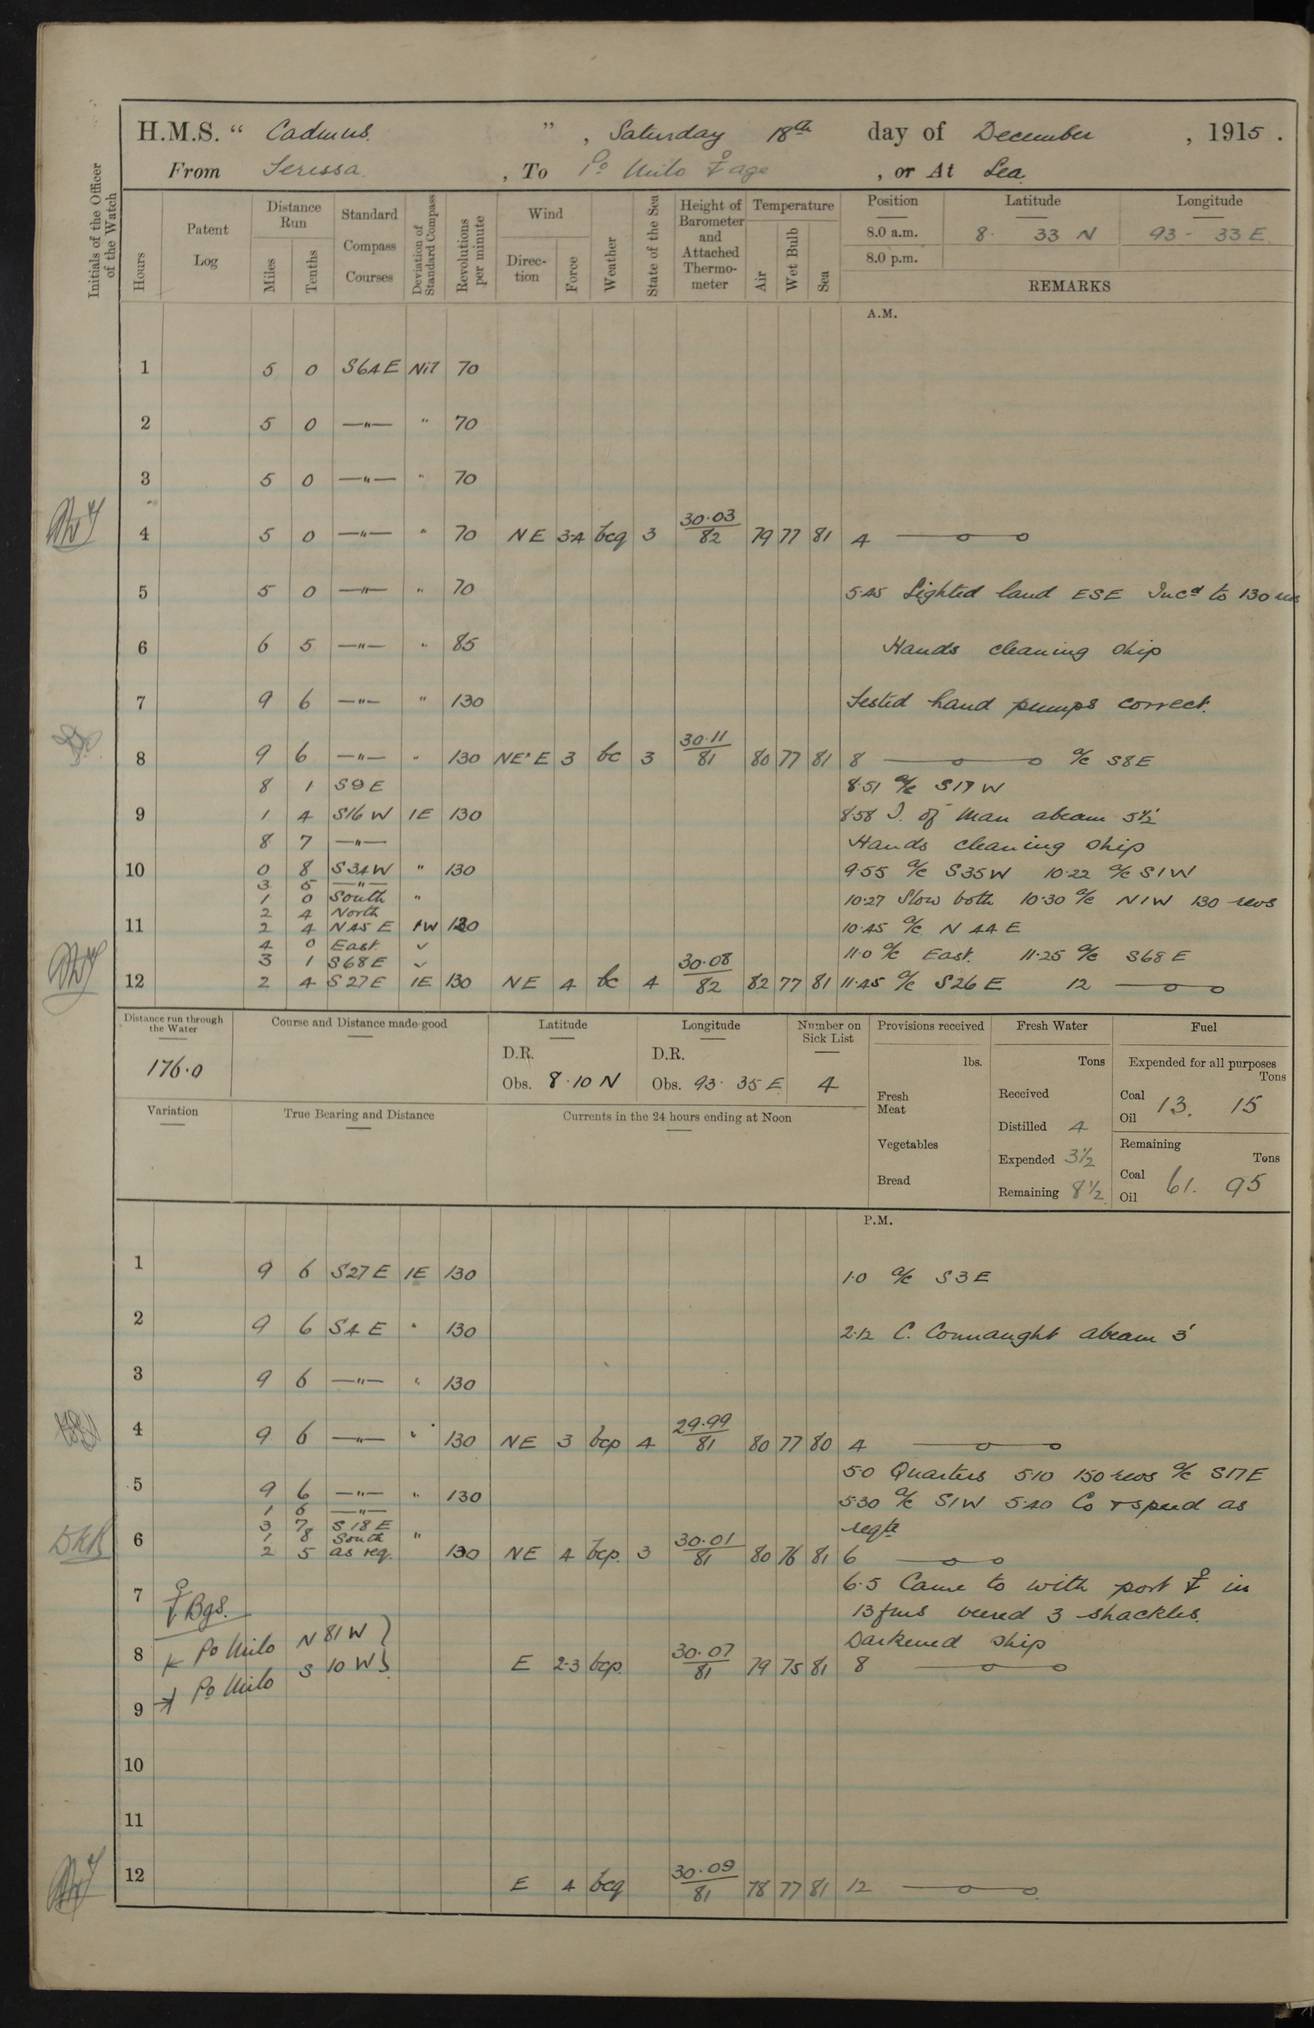 H.M.S. “ Cadmus ” , Saturday 18th day of December , 1915 .
From Teressa , To Po Milo , or At Sea
Initials of the Officer of the Watch
Hours
Patent Log
Distance Run
Miles
Tenths
Standard Compass Courses
Deviation of Standard Compass
Revolutions per minute
Wind
Direction
Force
Weather
State of the Sea
Height of Barometer and Attached Thermometer
Temperature
Air
Wet Bulb
Sea
Position Latitude Longitude
8.0 a.m. 8. 33 N 93 - 33 E
8.0 p.m.
REMARKS
A.M.
1 5 0 S64E Nil 70
2 5 0 —"— " 70
3 5 0 —"— " 70
4 5 0 —"— " 70 NE 3.4 bcq 3 30.03/82 79 77 81 4
5 5 0 —"— " 70 5.45 Sighted land ESE Incd to 130 revs
6 6 5 —"— " 85 Hands cleaning ship
7 9 6 —"— " 130 Tested hand pumps correct.
8 9 6 —"— " 130 NE'E 3 bc 3 30.11/81 80 77 81 8 a/c S8E
8 1 S9E 8.51 a/c S17W
9 1 4 S16W 1E 130 8.58 I. of Man abeam 5½'
8 7 —"— Hands cleaning ship
10 0 8 S34W " 130 9.55 a/c S35W 10.22 a/c S1W
3 5 —"—
1 0 South " 10.27 Slow both 10.30 a/c N1W 130 revs
2 4 North
11 2 4 N45E 1W 130 10.45 a/c N44E
4 0 East ✓ 11.0 a/c East. 11.25 a/c S68E
3 1 S68E ✓
12 2 4 S27E 1E 130 NE 4 bc 4 30.08/82 82 77 81 11.45 a/c S26E 12
Distance run through the Water
176.0
Course and Distance made good
Latitude
D.R.
Obs. 8.10 N
Longitude
D.R.
Obs. 93. 35 E
Number on Sick List
4
Provisions received
lbs.
Fresh Meat
Vegetables
Bread
Fresh Water
Tons
Received
Distilled 4
Expended 3½
Remaining 8½
Fuel
Expended for all purposes
Tons
Coal
Oil 13. 15
Remaining
Tons
Coal
Oil 61. 95
Variation
True Bearing and Distance
Currents in the 24 hours ending at Noon
P.M.
1 9 6 S27E 1E 130 1.0 a/c S3E
2 9 6 S4E " 130 2.12 C. Connaught abeam 3'
3 9 6 —"— " 130
4 9 6 —"— " 130 NE 3 bcp 4 29.99/81 80 77 80 4
5.0 Quarters 5.10 150 revs a/c S17E
5 9 6 —"— " 130
1 6 —"— 5.30 a/c S1W 5.40 Co & speed as
3 7 S18E reqte
1 8 South "
DKB 6 2 5 as req. 130 NE 4 bcp. 3 30.01/81 80 76 81 6
6.5 Came to with port ⚓ in
7 ⚓ Bgs. 13 fms veered 3 shackles.
Darkened ship
8 Po Milo N 81 W } E 2.3 bcp. 30.07/81 79 75 81 8
Po Milo S 10 W }
9
10
11
12 E 4 bcq 30.09/81 78 77 81 12